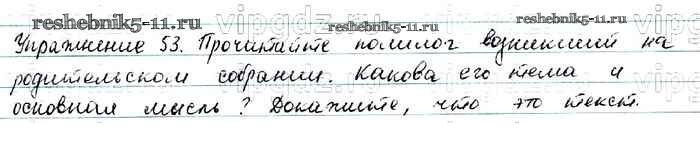 reshebnik5-11.ru reshebnik5-11.ru
Упражнение 53. Прочитайте полилог возникший на
родительском собрании. Какова его тема и
основная мысль? Докажите, что это текст.